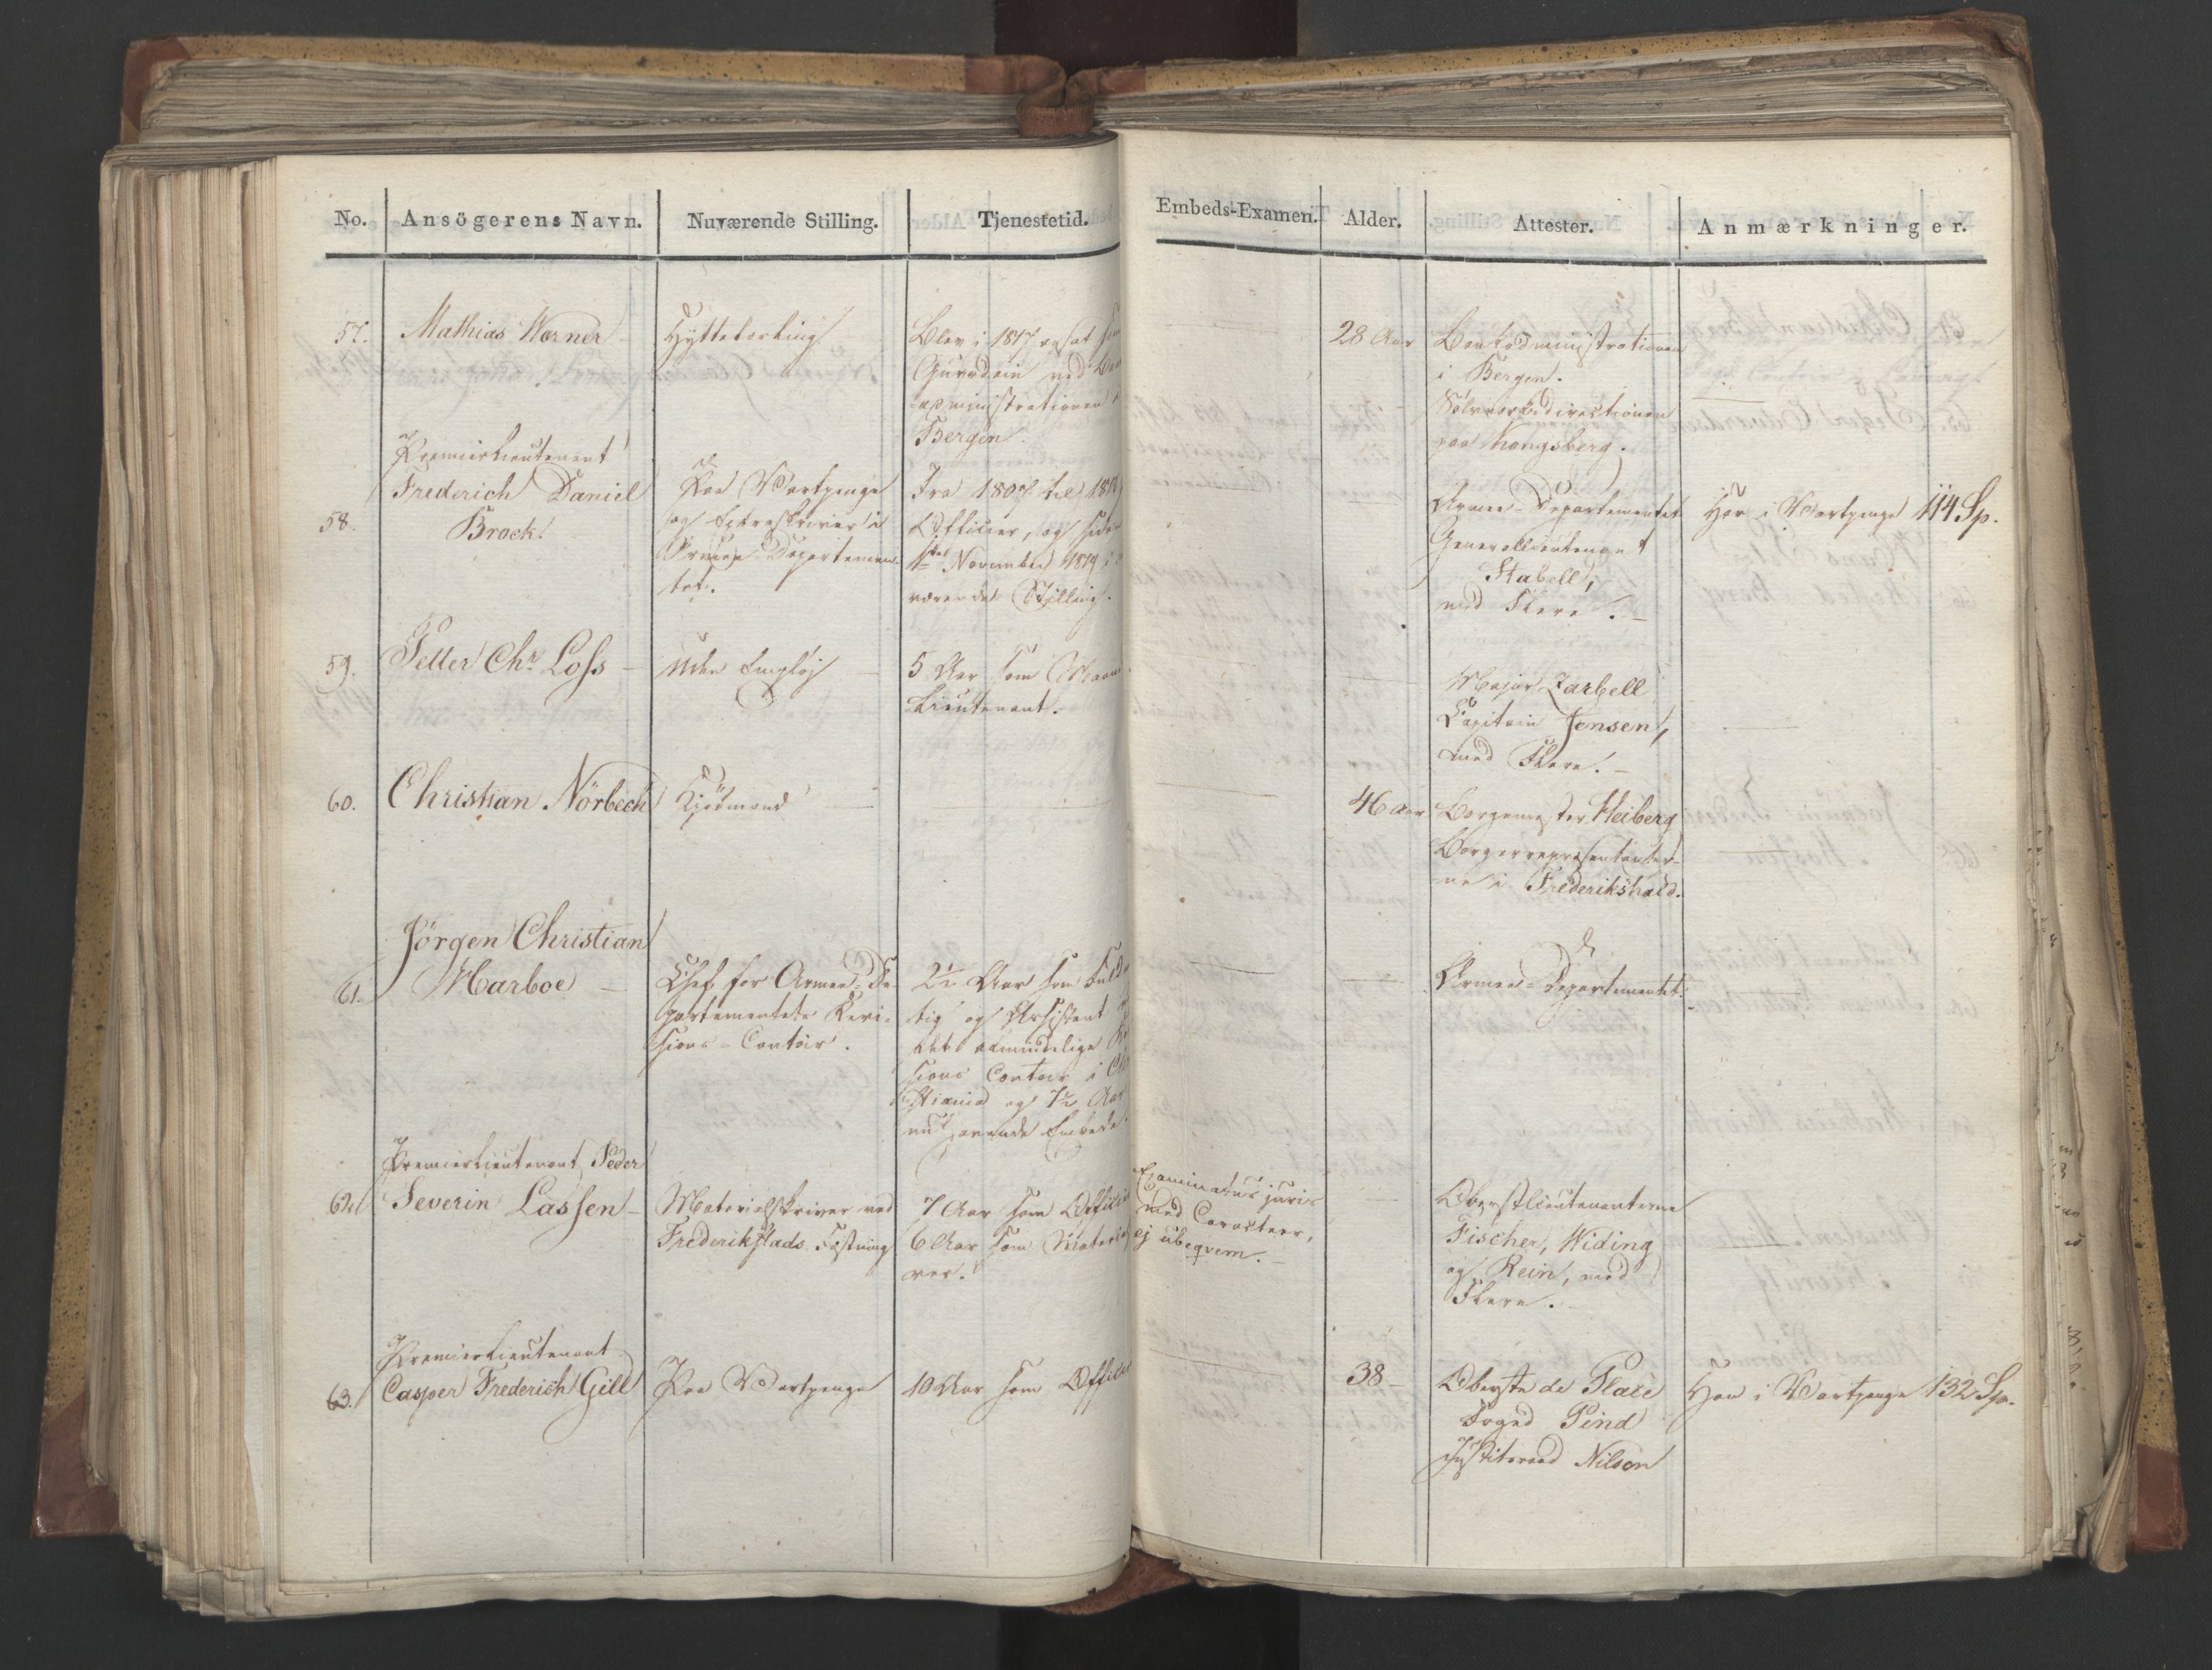 No. Ansögerens Navn. Nuværende Stilling. Tjenestetid. Embeds-Examen. Alder. Attester. Anmærkninger.
57. Mathias Werner
Blev i 1817 ansat
Guardein ved
administrationen
Bergen.
28 Aar
Bankadministrationen
i Bergen.
Sølvverksdirectionen
paa Kongsberg.
58. Premierlieutenant
Frederich Daniel
Brock
Paa Vartpenge
og Extraskriver i
Armee-Departemen-
tet.
Fra 1807 til
Officier, og
1ste November 1819 i
værende Stilling.
Armee-Departementet
Generallieutenant
Stabell,
med Flere.
Har i Vartpenge 114 Sp.
59. Petter Chr. Loss
Uden Emploj
5 Aar som
Lieutenant.
Major Zarbell
Capitain Jensen,
med Flere.
60. Christian Nörbech
Kjöbmand
46 Aar
Borgemester Heiberg
Borgerrepresentanter-
ne i Frederikshald.
61. Jörgen Christian
Marboe
Chef for Armee-De-
partementets Revi-
sions-Contoir.
2½ Aar som
tig og Assistent
det almindelige
sions Contoir i
stiania og 7½ Aar
nuhavende Embede.
Armee-Departementet.
62. Premierlieutenant Peder
Severin Lassen
Materialskriver ved
Frederikstads Fæstning
7 Aar som
6 Aar som
ver.
Examinatus juris
med Caracteer,
ej ubeqvem.
Oberstlieutenanterne
Fischer, Widing
og Rein, med
Flere.
63. Premierlieutenant
Casper Frederich Gill
Paa Vartpenge
10 Aar som
38
Oberste de Place
Foged Pind
Justitsraad Nilson
Har i Vartpenge 132 Sp.